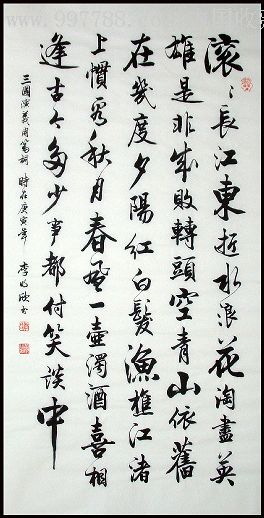 滾〻長江東逝水浪花淘盡英
雄是非成敗轉頭空青山依舊
在幾度夕陽紅白髮漁樵江渚
上慣看秋月春風一壺濁酒喜相
逢古今多少事都付笑談中
三國演義開篇詞 時在庚寅年 李 書
www.997788.com